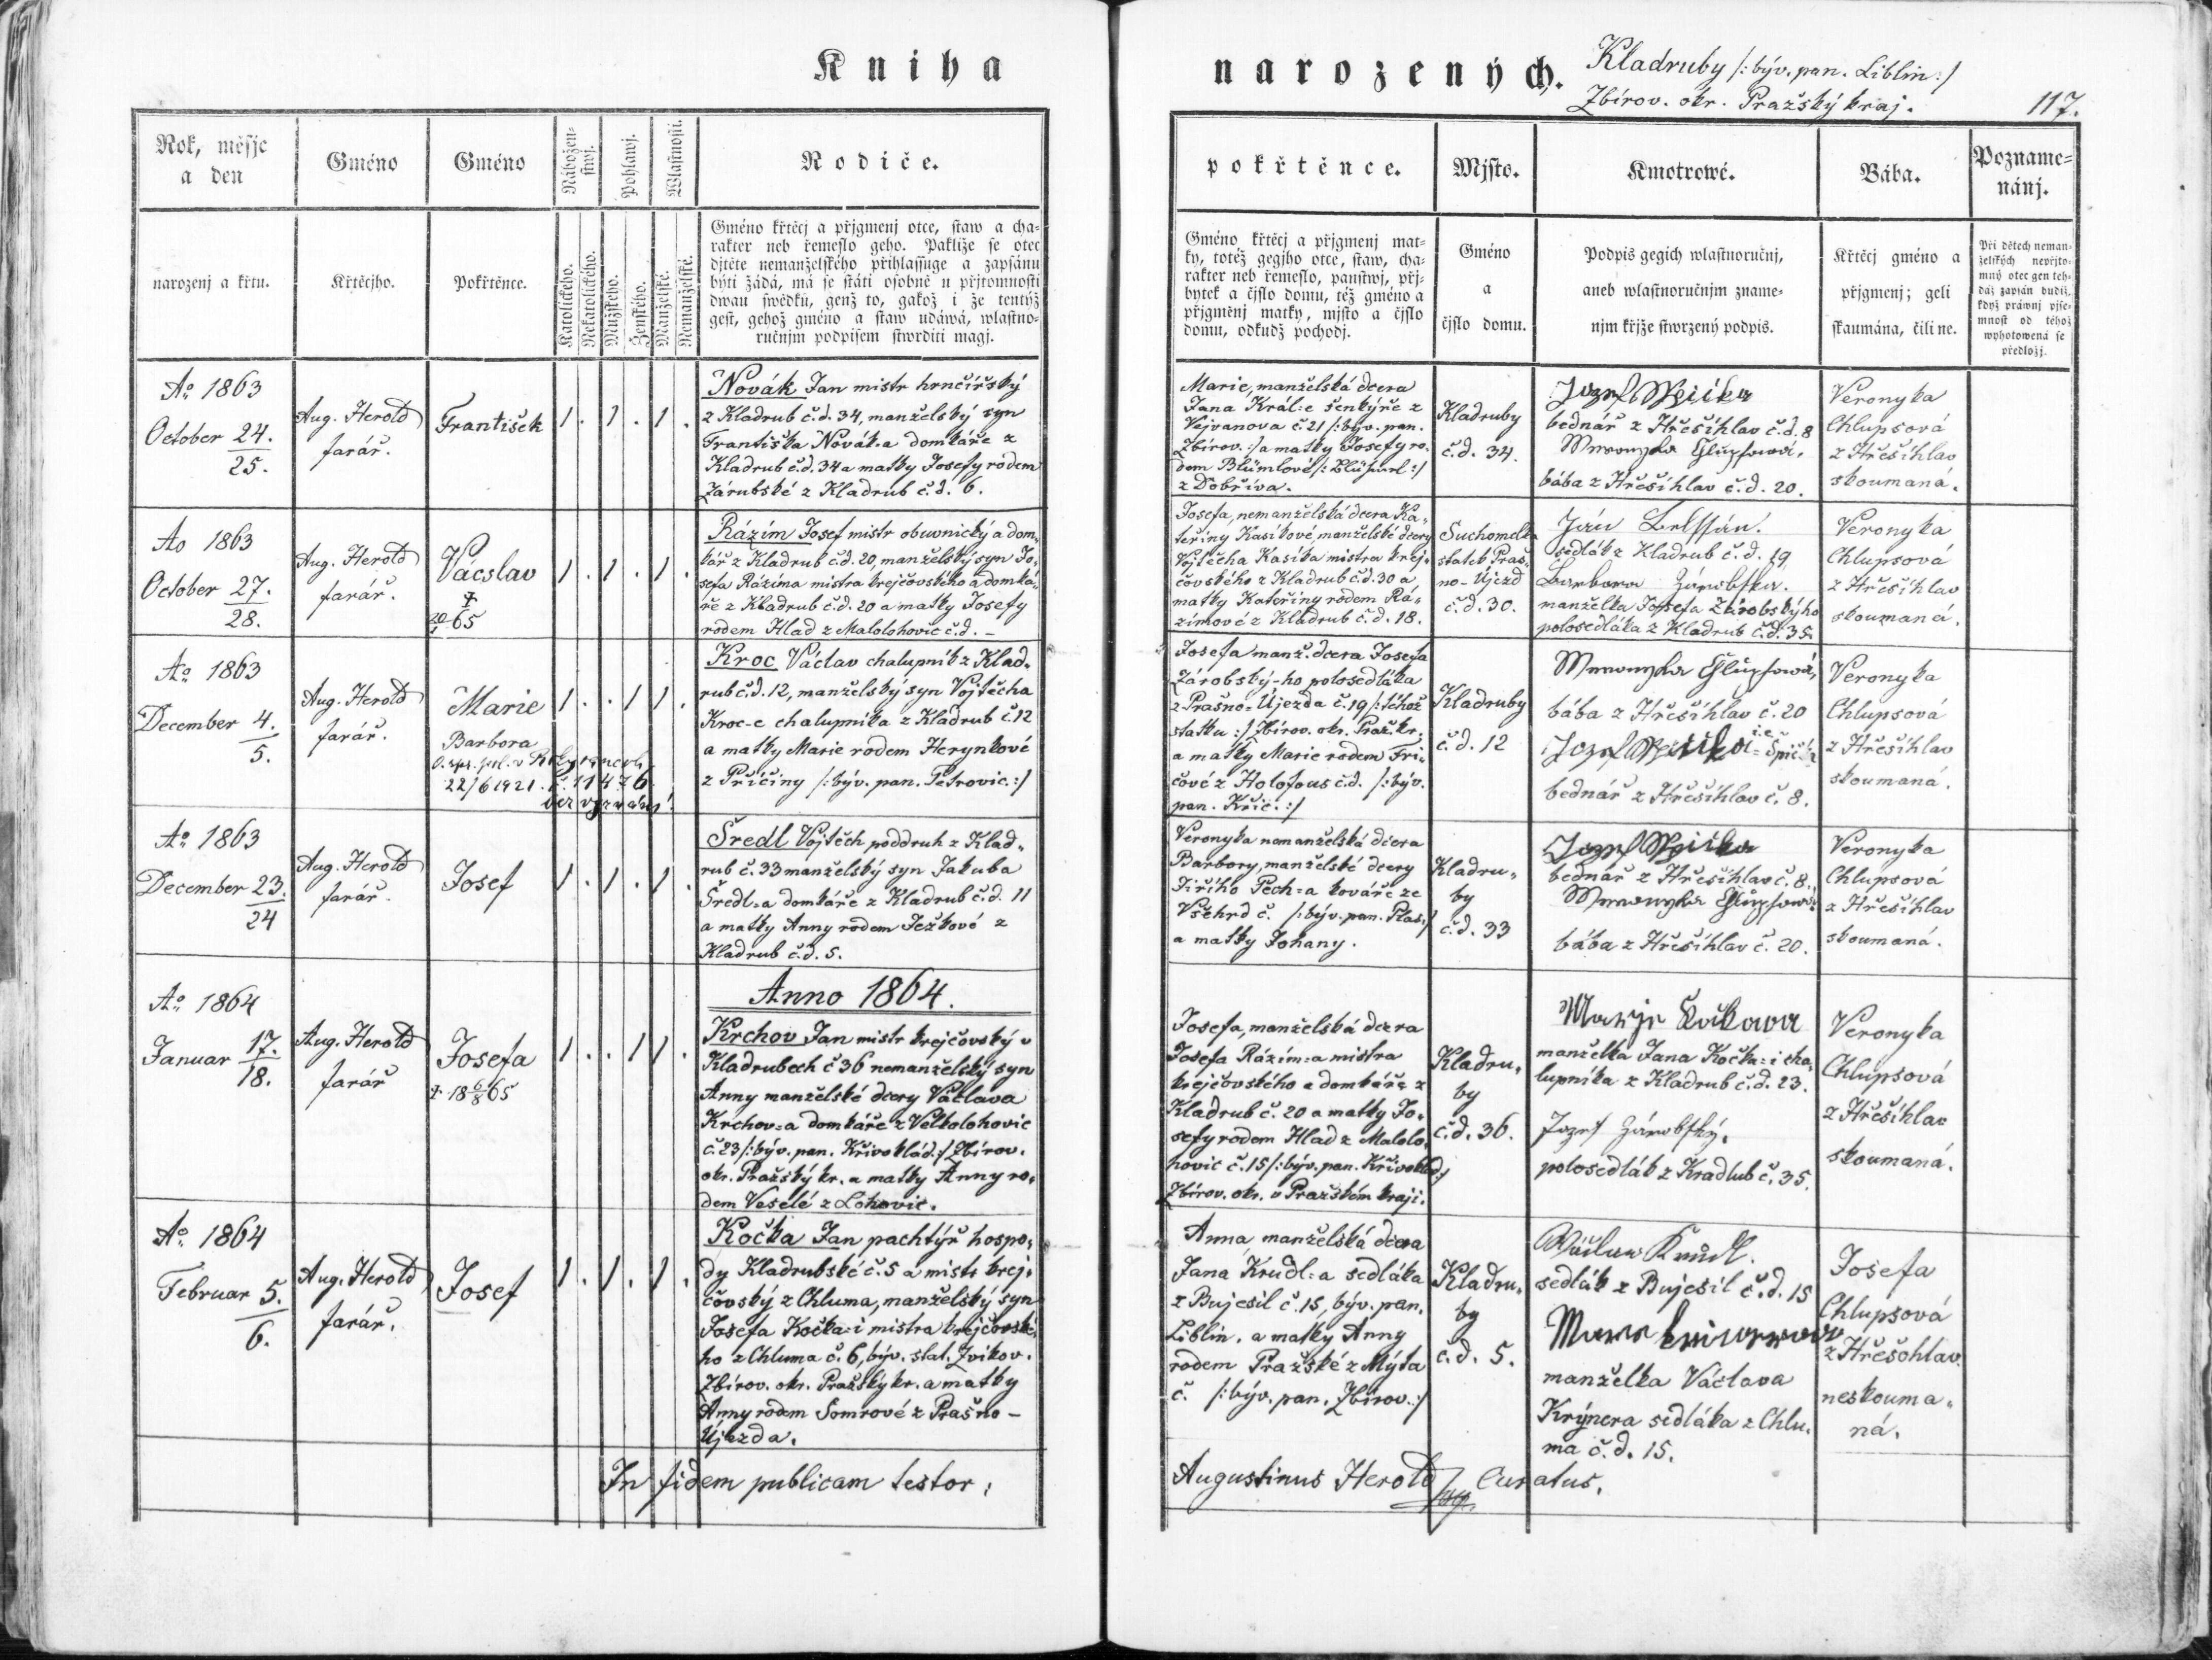 Kniha
narozených.
Kladruby /: býv. pan. Liblin :/
Zbírov. okr. Pražský kraj.
117.
Rok, měsjc
a den
Gméno
Gméno
Nábožen-
stwj.
Pohlawj.
Wlastnosti.
Rodiče.
narozenj a křtu.
Křtěcjho.
Pokřtěnce.
Katolického.
Nekatolického.
Mužského.
Ženského.
Manželské.
Nemanželské.
Gméno křtěcj a přjgmenj otce, staw a cha-
rakter neb řemeslo geho. Pakliže se otec
djtěte nemanželského přihlassuge a zapsánu
býti žádá, má se státi osobně u přjtomnosti
dwau swědků, genž to, gakož i že tentýž
gest, gehož gméno a staw udáwá, wlastno-
ručnjm podpisem stwrditi magj.
Aº 1863
October 24.
25.
Aug. Herold
farář.
František
1 . 1 . 1 .
Novák Jan mistr hrnčířský
z Kladrub č.d. 34, manželský syn
Františka Novák-a domkáře z
Kladrub č.d. 34 a matky Josefy rodem
Zárubské z Kladrub č.d. 6.
Ao 1863
October 27.
28.
Aug. Herold
farář.
Vácslav
65
1 . 1 . 1 .
Rázím Josef mistr obuvnický a dom-
kář z Kladrub č.d. 20, manželský syn Jo-
sefa Rázíma mistra krejčovského a domká-
ře z Kladrub č.d. 20 a matky Josefy
rodem Hlad z Malolohovic č.d. –
Aº 1863
December 4.
5.
Aug. Herold
farář.
Marie
Barbora
22/6 1921. č. 11476
bez vyznání.
1 . . 1 1 .
Kroc Václav chalupník z Klad-
rub č.d. 12, manželský syn Vojtěcha
Kroc-e chalupníka z Kladrub č. 12
a matky Marie rodem Herynkové
z Příčiny /: býv. pan. Petrovic. :/
Aº 1863
December 23.
24
Aug. Herold
farář.
Josef
1 . 1 . 1 .
Šredl Vojtěch poddruh z Klad-
rub č. 33 manželský syn Jakuba
Šredl-a domkáře z Kladrub č.d. 11
a matky Anny rodem Ježkové z
Kladrub č.d. 5.
Anno 1864.
Aº 1864
Januar 17.
18.
Aug. Herold
farář
Josefa
1 . . 1 1 .
Krchov Jan mistr krejčovský v
Kladrubech č 36 nemanželský syn
Anny manželské dcery Václava
Krchov-a domkáře z Velkolohovic
č. 23 /: býv. pan. Křivoklád. :/ Zbírov.
okr. Pražský kr. a matky Anny ro-
dem Veselé z Lohovic.
Aº 1864
Februar 5.
6.
Aug. Herold
farář.
Josef
1 . 1 . 1 .
Kočka Jan pachtýř hospo-
dy Kladrubské č. 5 a mistr krej-
čovský z Chluma, manželský syn
Josefa Kočka-i mistra krejčovské-
ho z Chluma č. 6, býv. stat. Zvíkov.
Zbírov. okr. Pražský kr. a matky
Anny rodem Somrové z Prašno-
Újezda.
In fidem publicam testor:
pokřtěnce.
Mjsto.
Kmotrowé.
Bába.
Pozname-
nánj.
Gméno křtěcj a přjgmenj mat-
ky, totéž gegjho otce, staw, cha-
rakter neb řemeslo, panstwj, přj-
bytek a čjslo domu, též gméno a
přjgmenj matky, mjsto a čjslo
domu, odkudž pochodj.
Gméno
a
čjslo domu.
Podpis gegich wlastnoručnj,
aneb wlastnoručnjm zname-
njm křjže stwrzený podpis.
Křtěcj gméno a
přjgmenj; geli
skaumána, čili ne.
Při dětech neman-
želských nepřjto-
mný otec gen teh-
dáž zapsán budiž,
když práwnj pjse-
mnost od téhož
wyhotowená se
předložj.
Marie, manželská dcera
Jana Král-e šenkýře z
Vejvanova č 21 /: býv. pan.
Zbírov. :/ a matky Josefy ro-
dem Blümlové
z Dobříva.
Kladruby
č.d. 34.
bednář z Hřešihlav č.d. 8
bába z Hřešihlav č.d. 20.
Veronyka
Chlupsová
z Hřešihlav
skoumaná.
Josefa, nemanželská dcera Ka-
teřiny Kasíkové, manželské dcery
Vojtěcha Kasíka mistra krej-
čovského z Kladrub č.d. 30 a
matky Kateřiny rodem Rá-
zímové z Kladrub č.d. 18.
Suchomelka
statek Praš-
no-Újezd
č.d. 30.
sedlák z Kladrub č.d. 19
Barbora Zárobska.
manželka Josefa Zárobskýho
polosedláka z Kladrub č.d. 35.
Veronyka
Chlupsová
z Hřešihlav
skoumaná.
Josefa manž. dcera Josefa
Zárobský-ho polosedláka
z Prašno-Újezda č. 19 /: téhož
statku :/ Zbírov. okr. Praž. kr.
a matky Marie rodem Fri-
čové z Holofous č.d. /: býv.
pan. Křic. :/
Kladruby
č.d. 12
bába z Hřešihlav č. 20
bednář z Hřešihlav č. 8.
Veronyka
Chlupsová
z Hřešihlav
skoumaná.
Veronyka nemanželská dcera
Barbory, manželské dcery
Jiřího Pech-a kováře ze
Všehrd č. /: býv. pan. Plas. :/
a matky Johany.
Kladru-
by
č.d. 33
bednář z Hřešihlav č. 8.
bába z Hřešihlav č. 20.
Veronyka
Chlupsová
z Hřešihlav
skoumaná.
Josefa, manželská dcera
Josefa Rázím-a mistra
krejčovského a domkáře z
Kladrub č. 20 a matky Jo-
sefy rodem Hlad z Malolo-
hovic č. 15 /: býv. pan. Křivoklád :/
Zbírov. okr. v Pražském kraji.
Kladru-
by
č.d. 36.
manželka Jana Kočka-i cha-
lupníka z Kladrub č.d. 23.
Jozef Zárobský.
polosedlák z Kradlub č. 35.
Veronyka
Chlupsová
z Hřešihlav
skoumaná.
Anna manželská dcera
Jana Krudl-a sedláka
z Bujesil č. 15, býv. pan.
Liblin. a matky Anny
rodem Pražské z Mýta
č. /: býv. pan. Zbírov. :/
Kladru-
by
č.d. 5.
sedlák z Bujesil č.d. 15
manželka Václava
Krýnera sedláka z Chlu-
ma č.d. 15.
Josefa
Chlupsová
z Hřešohlav
neskouma-
ná.
Augustinus Herold mp. Curatus.